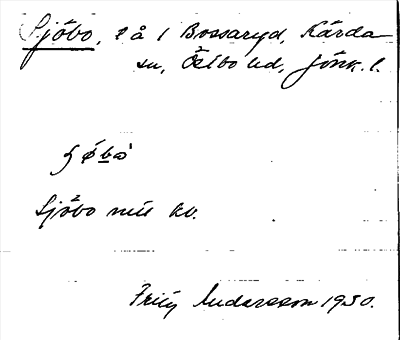 Sjöbo, t å 1 Bossaryd, Kärda
sn, Östbo hd, Jönk. l.
Sjöbo mit kv.
Fritz Andersson 1930.